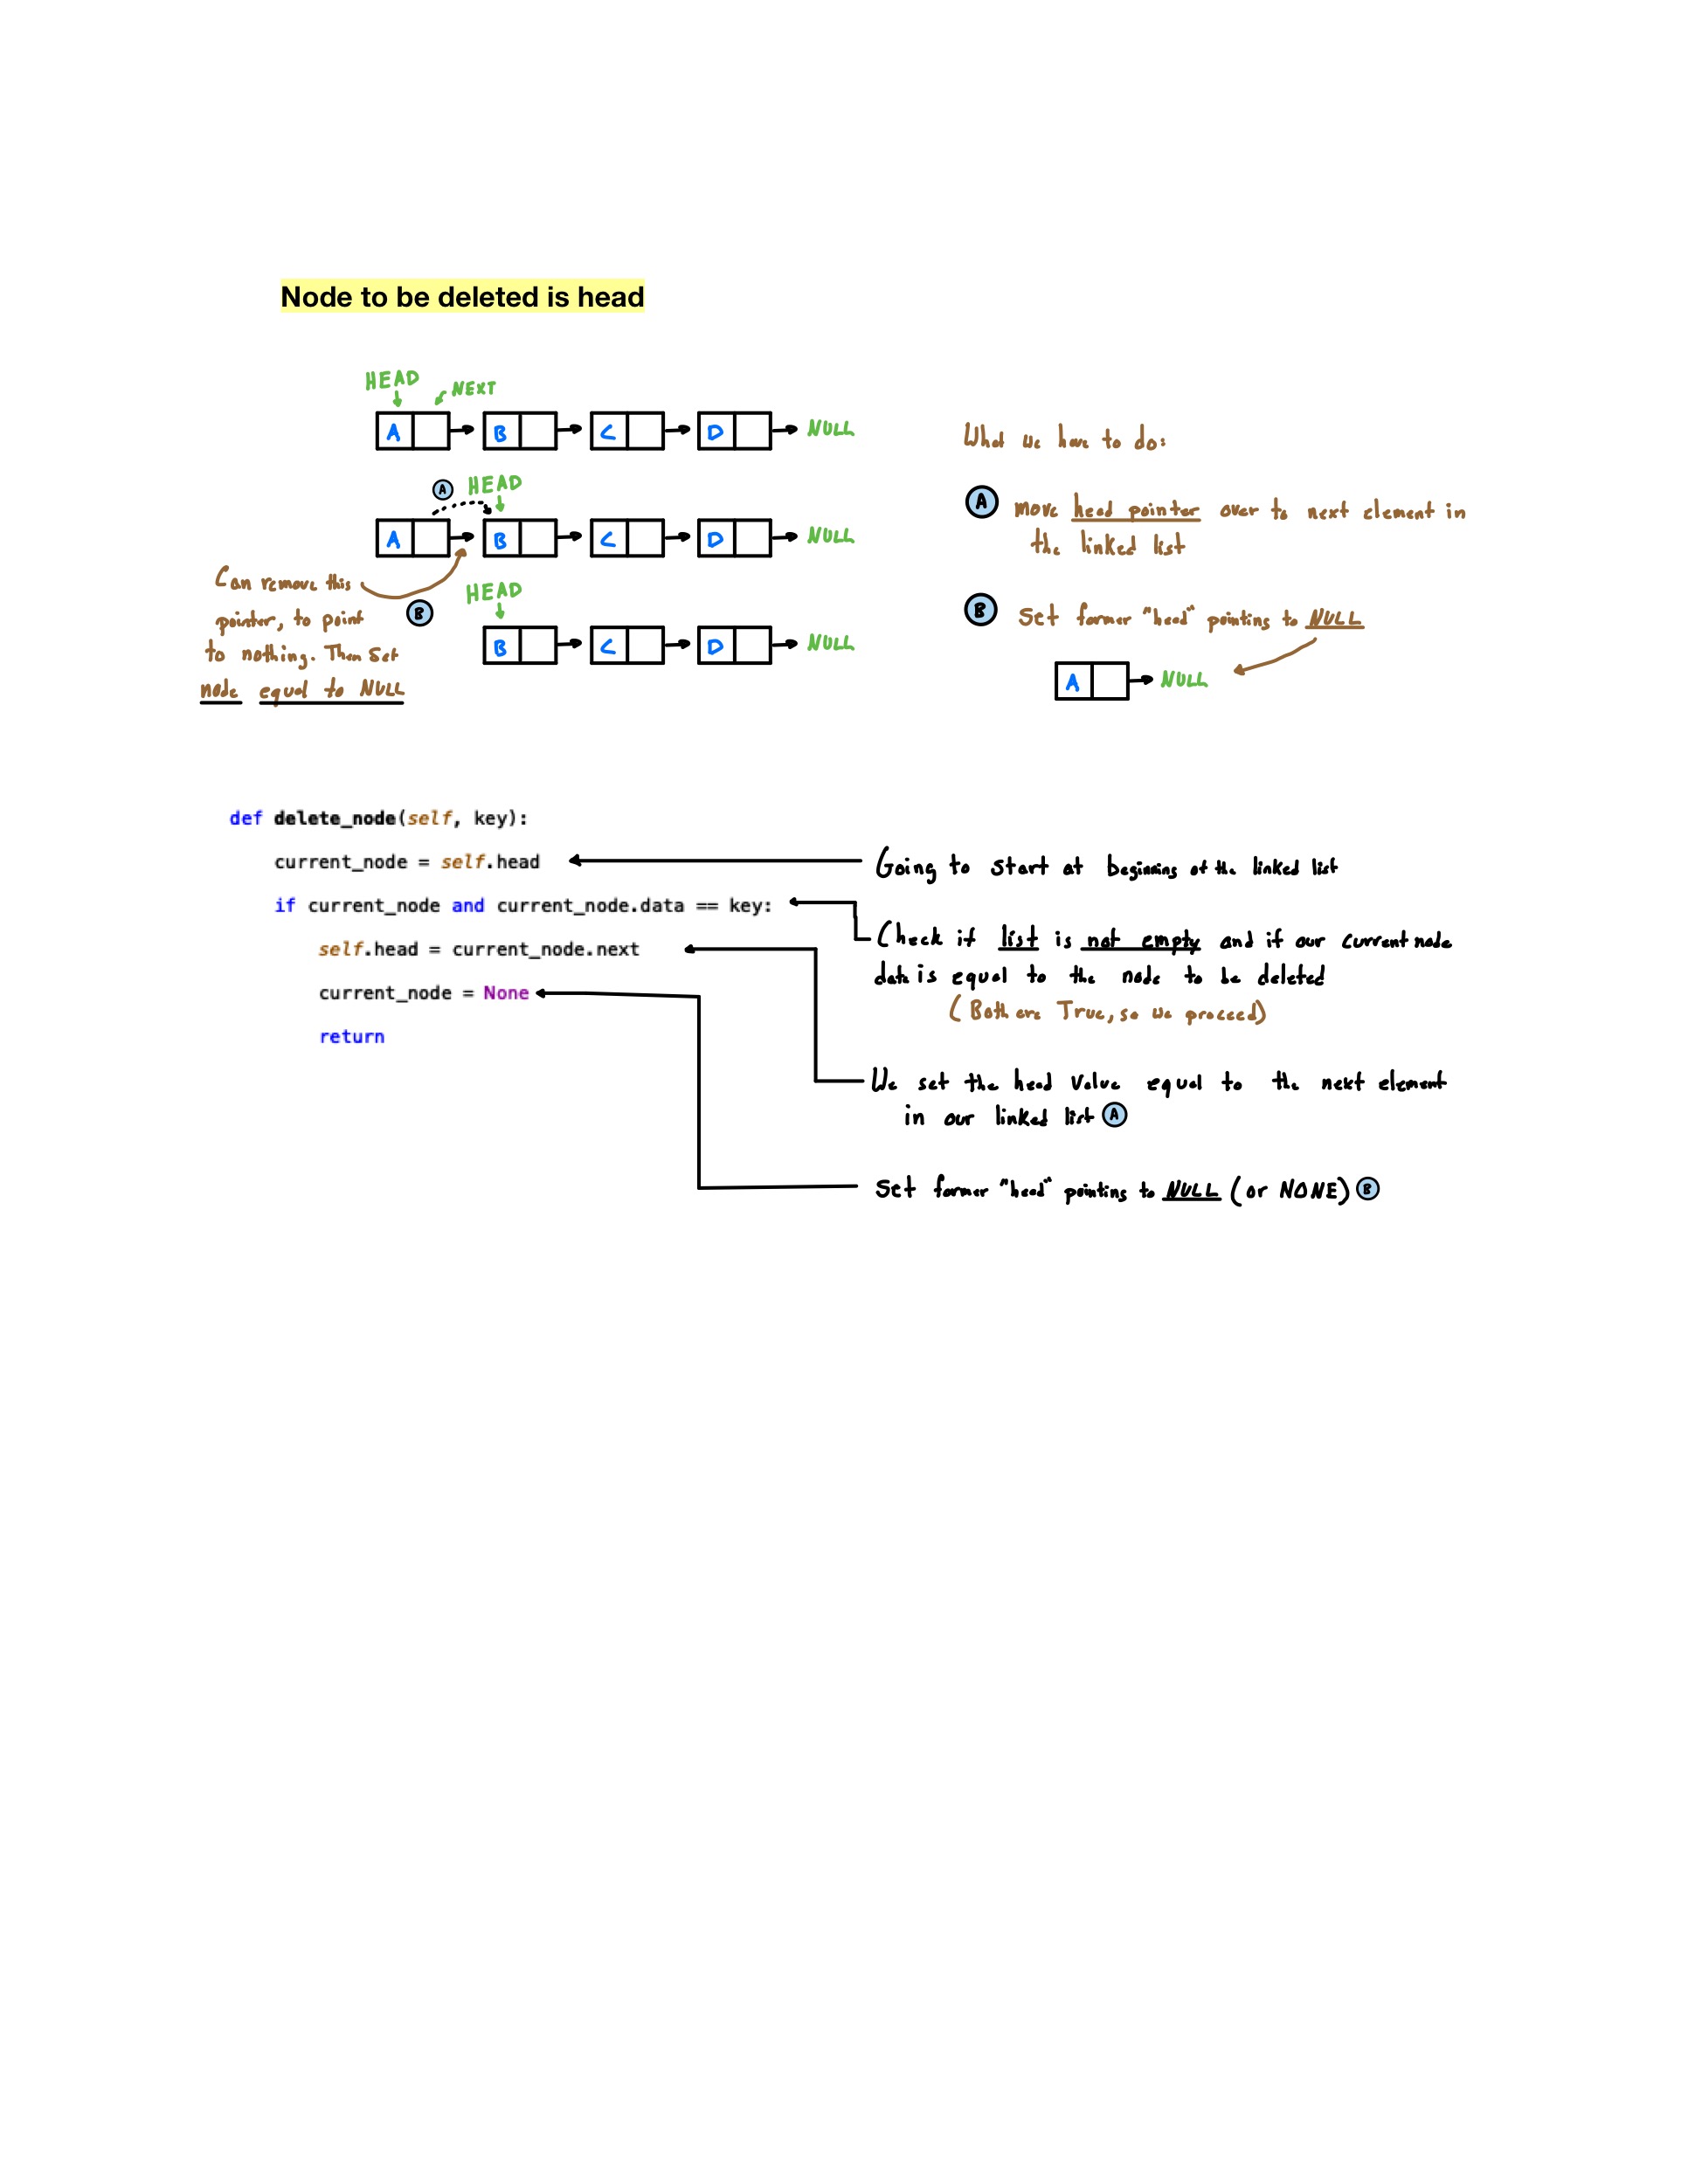 Node to be deleted is head
HEAD
NEXT
A B C D NULL
A HEAD
A B C D NULL
Can remove this
pointer, to point
to nothing. Then Set
node equal to NULL
B
HEAD
B C D NULL
What we have to do:
A move head pointer over to next element in
the linked list
B Set former "head" pointing to NULL
A NULL
def delete_node(self, key):
current_node = self.head
if current_node and current_node.data == key:
self.head = current_node.next
current_node = None
return
Going to start at beginning of the linked list
Check if list is not empty and if our current node
data is equal to the node to be deleted
(Both are True, so we proceed)
We set the head value equal to the next element
in our linked list A
Set former "head" pointing to NULL (or NONE) B